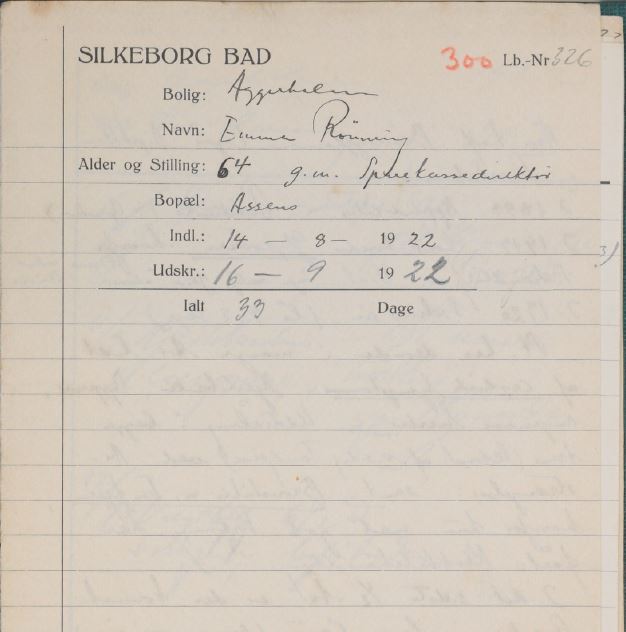 SILKEBORG BAD 300 Lb.-Nr 326
Bolig: Aggerholm
Navn: Emma Rönning
Alder og Stilling: 64 g.m. Sparekassedirektör
Bopæl: Assens
Indl.: 14 - 8 - 19 22
Udskr.: 16 - 9 19 22
Ialt 33 Dage